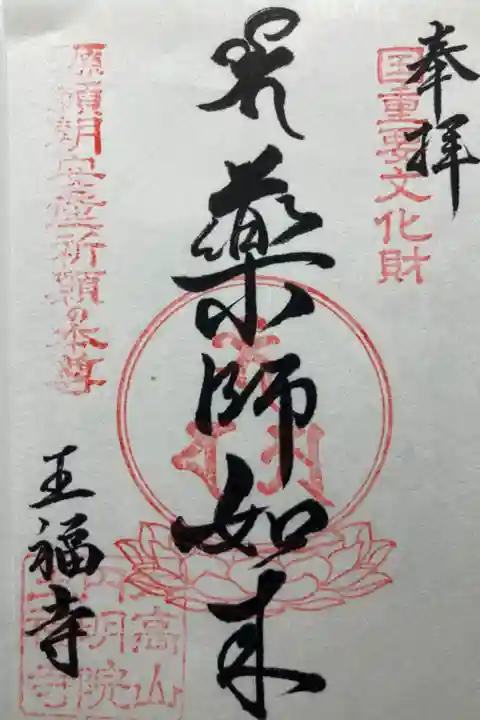 奉拝
国重要文化財
薬師如来
源頼朝
祈願の本尊
王福寺
高山
明院